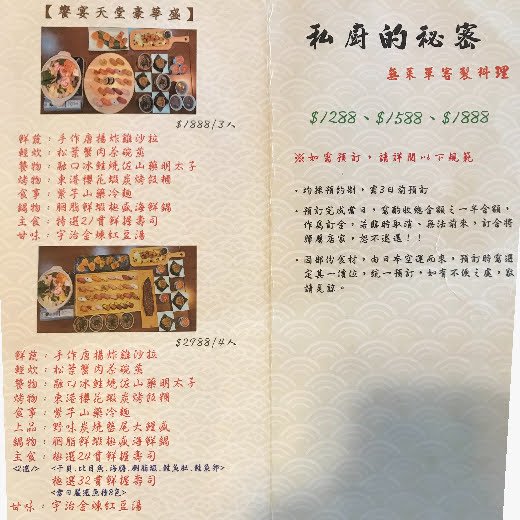 【饗宴天堂豪華盛】
$1888/3人
鮮蔬：手作唐揚炸雞沙拉
輕炊：松葉蟹肉茶碗蒸
饕物：融口冰鮭燒佐山藥明太子
烤物：東港櫻花蝦炭烤飯糰
食事：紫子山藥冷麵
鍋物：胭脂鮮蝦極盛海鮮鍋
主食：特選21貫鮮握壽司
甘味：宇治金煉紅豆湯
$2988/4人
鮮蔬：手作唐揚炸雞沙拉
輕炊：松葉蟹肉茶碗蒸
饕物：融口冰鮭燒佐山藥明太子
烤物：東港櫻花蝦炭烤飯糰
食事：紫子山藥冷麵
上品：野味炭燒蟹尾大鰻盛
鍋物：胭脂鮮蝦極盛海鮮鍋
主食：極選24貫鮮握壽司
<2選1> <干貝.比目魚.海膽.胭脂蝦.鮭魚肚.鮭魚卵>
極選32貫鮮握壽司
<當日嚴選魚種8色>
甘味：宇治金煉紅豆湯
私廚的秘密
無菜單客製料理
$1288、$1588、$1888
※如需預訂，請詳閱以下規範
·均採預約制，需3日前預訂
·預訂完成當日，需酌收總金額之一半金額，
作為訂金，若臨時取消、無法前來，訂金將
歸屬店家，恕不退還！！
·因部份食材，由日本空運而來，預訂時需選
定其一價位，統一預訂，如有不便之處，敬
請見諒。